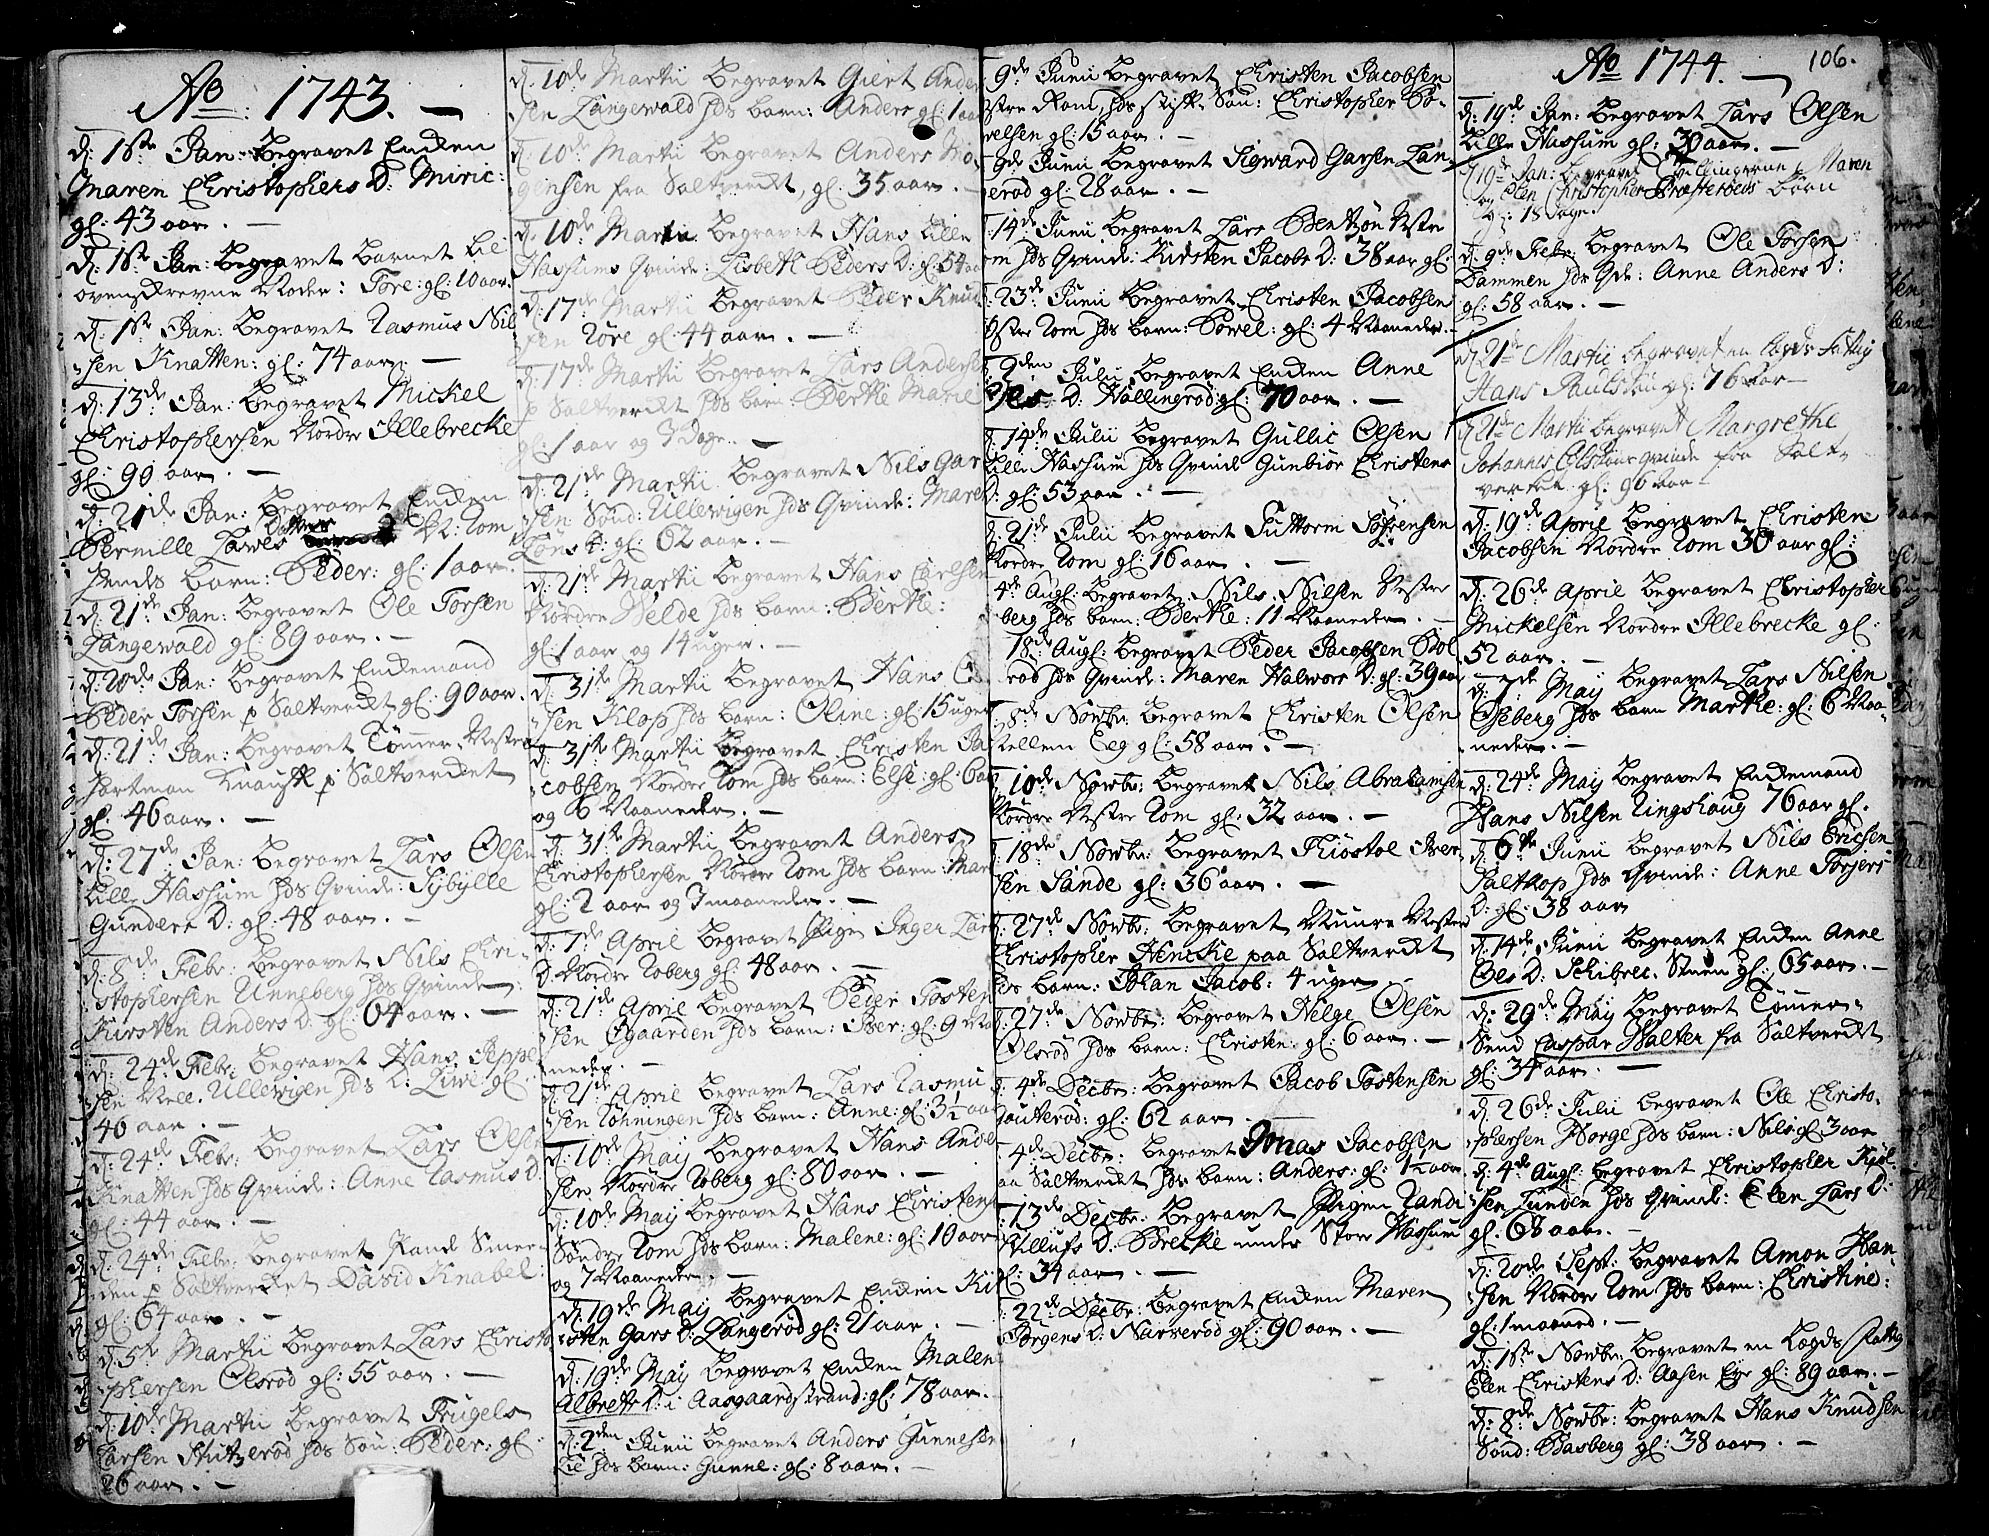 Ao: 1743. —
d: 1ste Jan: begravet Enken
Maren Christophers D: Miric:
gl: 43 aar. —
d: 1ste Jan: begravet barnet til
ovenskrevne Moder: Tore: gl: 10 aar.
d: 1ste Jan: begravet Rasmus Nil
sen Knatten: gl: 74 aar. —
d: 13de Jan: begravet Mickel
Christophersen Nordre Illebrecke
gl: 90 aar. —
d: 21de Jan: begravet Enken
Pernille Lawes Datter V: Rom
hendes barn: Peder: gl: 1 aar.
d: 21de Jan: begravet Ole Torsen
Langewald gl: 89 aar. —
d: 20de Jan: begravet Enkemand
Peder Torsen p Saltverket gl: 90 aar.
d: 21de Jan: begravet Tømmer Mester
Hartman p Saltverket
gl: 46 aar. —
d: 27de Jan: begravet Lars Olsen
Lille Nassum hds Qvinde: Sybylle
Gunders D: gl: 48 aar. —
d: 8de Febr: begravet Nils Chri-
stophersen Unneberg hds Qvinde
Kirsten Anders D: gl: 64 aar. —
d: 24de Febr: begravet Hans Jeppe
sen Mell. Ullewigen hds D: Live: gl:
40 aar. —
d: 24de Febr: begravet Lars Olsen
Knatten hds Qvinde: Anne Rasmus D:
gl: 44 aar. —
d: 24de Febr: begravet Pande Smer-
den p Saltverket David Knabel:
gl: 64 aar. —
d: 5te Martii begravet Lars Christo
phersen Olsrød gl: 55 aar. —
d: 10de Martii begravet Trugels
Larsen hds Søn: Peder: gl:
26 aar. —
d: 10de Martii begravet Giert Ander
sen Langewald hds barn: Anders gl: 1 aar
d: 10de Martii begravet Anders Mo-
gensen fra Saltverket, gl: 35 aar. —
d: 10de Martii begravet Hans Lille
Nassums Qvinde: Lisbeth Peders D: gl: 54 aar
d: 17de Martii begravet Peder Knud
sen Røre gl: 44 aar. —
d: 17de Martii begravet Lars Andersen
p Saltverket hds barn: Berthe Marie
gl: 1 aar og 3 Dage. —
d: 21de Martii begravet Nils Gar
sen Sønd: Ullewigen hds Qvinde: Maren
gl: 62 aar. —
d: 21de Martii begravet Hans Carlsen
Nordre Welde hds barn: Berthe:
gl: 1 aar og 14 uger. —
d: 31te Martii begravet Hans
sen Klop hds barn: Oline: gl: 15 uger
d: 31te Martii begravet Christen Ja
cobsen Nordre Rom hds barn: Else: gl: 6 aar
og 6 Maaneder. —
d: 31te Martii begravet Anders
Christophersen Nordre Rom hds barn: Mar
gl: 2 aar og 3 maaneder. —
d: 7de April begravet Pigen Inger Lars
D: Nordre Roberg gl: 48 aar. —
d: 21de April begravet Peder Tosten
sen Øgaarden hds barn: Iver: gl: 9 Ma
neder. —
d: 21de April begravet Lars Rasmu
sen Røhningen hds barn: Anne: gl: 3½ aar
d: 10de May begravet Hans Ander
sen Nordre Roberg gl: 80 aar. —
d: 10de May begravet Hans Christens
Søndre Rom hds barn: Malene: gl: 10 aar
og 7 Maaneder. —
d: 19de May begravet Enken Kir
sten Gars D: Langerød gl: 21 aar. —
d: 19de May begravet Enken Malen
Albrets D: i Aasgaardstrand: gl: 78 aar.
d: 2den Junii begravet Anders Gunnesen
Lie hds barn: Gunne: gl: 8 aar. —
9de Junii begravet Christen Jacobsen
Østre Rom, hds stiff Søn: Christopher Po-
welsen gl: 15 aar. —
9de Junii begravet Sigward Garsen Lan-
erød gl: 28 aar. —
14de Junii begravet Lars Bentsøn Vestre
om hds Qvinde: Kirsten Jacobs D: 38 aar gl:
23de Junii begravet Christen Jacobsen
Østre Rom hds barn: Powel: gl: 4 Maaneder. —
9den Julii begravet Enken Anne
D: Hallingrød gl: 70 aar. —
14de Julii begravet Gullic Olsen
Lille Nassum hds Qvinde Gunbiør Christens
D: gl: 53 aar. —
21de Julii begravet Guttorm Søfrensen
Nordre Rom gl: 16 aar. —
4de Aug: begravet Nils Nilsen Vestre
berg hds barn: Berthe: 11 Maaneder. —
18de Aug: begravet Peder Jacobsen Bol
rød hds Qvinde: Maren Halwors D: gl: 39 aar
8de Novbr: begravet Christen Olsen
Mellem Eeg gl: 58 aar. —
10de Novbr: begravet Nils Abrahamsen
Nordre Vestre Rom gl: 32 aar. —
18de Novbr: begravet Kiøstol Iver
sen Sande gl: 36 aar. —
27de Novbr: begravet Muure Mester
Christopher Hencke paa Saltverket
hds barn: Johan Jacob: 4 uger —
27de Novbr: begravet Helge Olsen
Olsrød hds barn: Christen: gl: 6 aar. —
4de Decbr: begravet Jacob Tostensen
Gauterød: gl: 62 aar. —
4de Decbr: begravet Jonas Jacobsen
aa Saltverket hds barn: Anders: gl: 1½ aar.
13de Decbr: begravet Pigen Randi
Killufs D: Brecke under Store Nassum
gl: 34 aar. —
22de Decbr: begravet Enken Maren
Jørgens D: Narwerød gl: 90 aar. —
Ao 1744. —
106.
d: 19de Jan: begravet Lars Olsen
Lille Nassum gl: 30 aar. —
d: 19de Jan: begravet tvillingerne Maren
og Elen Christopher Præsterbechs børn
gl: 18 dage.
d: 9de Febr: begravet Ole Torsen
Dammen hds Qde: Anne Anders D:
gl: 58 aar. —
d: 21de Martii begravet en Lægds fattig
Hans Paulsøn gl: 76 aar —
d 21de Martii begravet Margrethe
Johannes Olsøns qvinde fra Salt-
verket gl: 90 aar
d: 19de April begravet Christen
Jacobsen Nordre Rom 30 aar gl:
d: 26de April begravet Christopher
Mickelsen Nordre Illebrecke gl:
52 aar. —
d: 7de May begravet Lars Nilsen
Oseberg hds barn Marthe: gl: 6 Maa-
neder. —
d: 24de May begravet Enkemand
Hans Nilsen Ringshaug 76 aar gl.
d: 6te Junii begravet Nils Ericsen
Saltkop hds Qvinde: Anne Torgers
D: gl: 38 aar
d: 14de Junii begravet Enken Anne
Oles D: Schibrec. Stuen gl: 65 aar. —
d: 29de May begravet Tømmer-
Svend Caspar Walter fra Saltverket
gl: 34 aar. —
d: 26de Julii begravet Ole Christo-
phersen Borge hds barn: Nils gl: 3 aar
d: 4de Aug: begravet Christopher Kjøl-
sen Lunden hds Qvinde: Elen Lars D:
gl: 68 aar. —
d: 20de Sept: begravet Amon Han
sen Nordre Rom hds barn: Christine:
gl: 1 maaned. —
d: 1ste Novbr: begravet en Lægds fattig
Elen Christens D: Aasen Eje gl: 89 aar. —
d: 8de Novbr: begravet Hans Knudsen
Sønd: Basberg gl: 38 aar. —